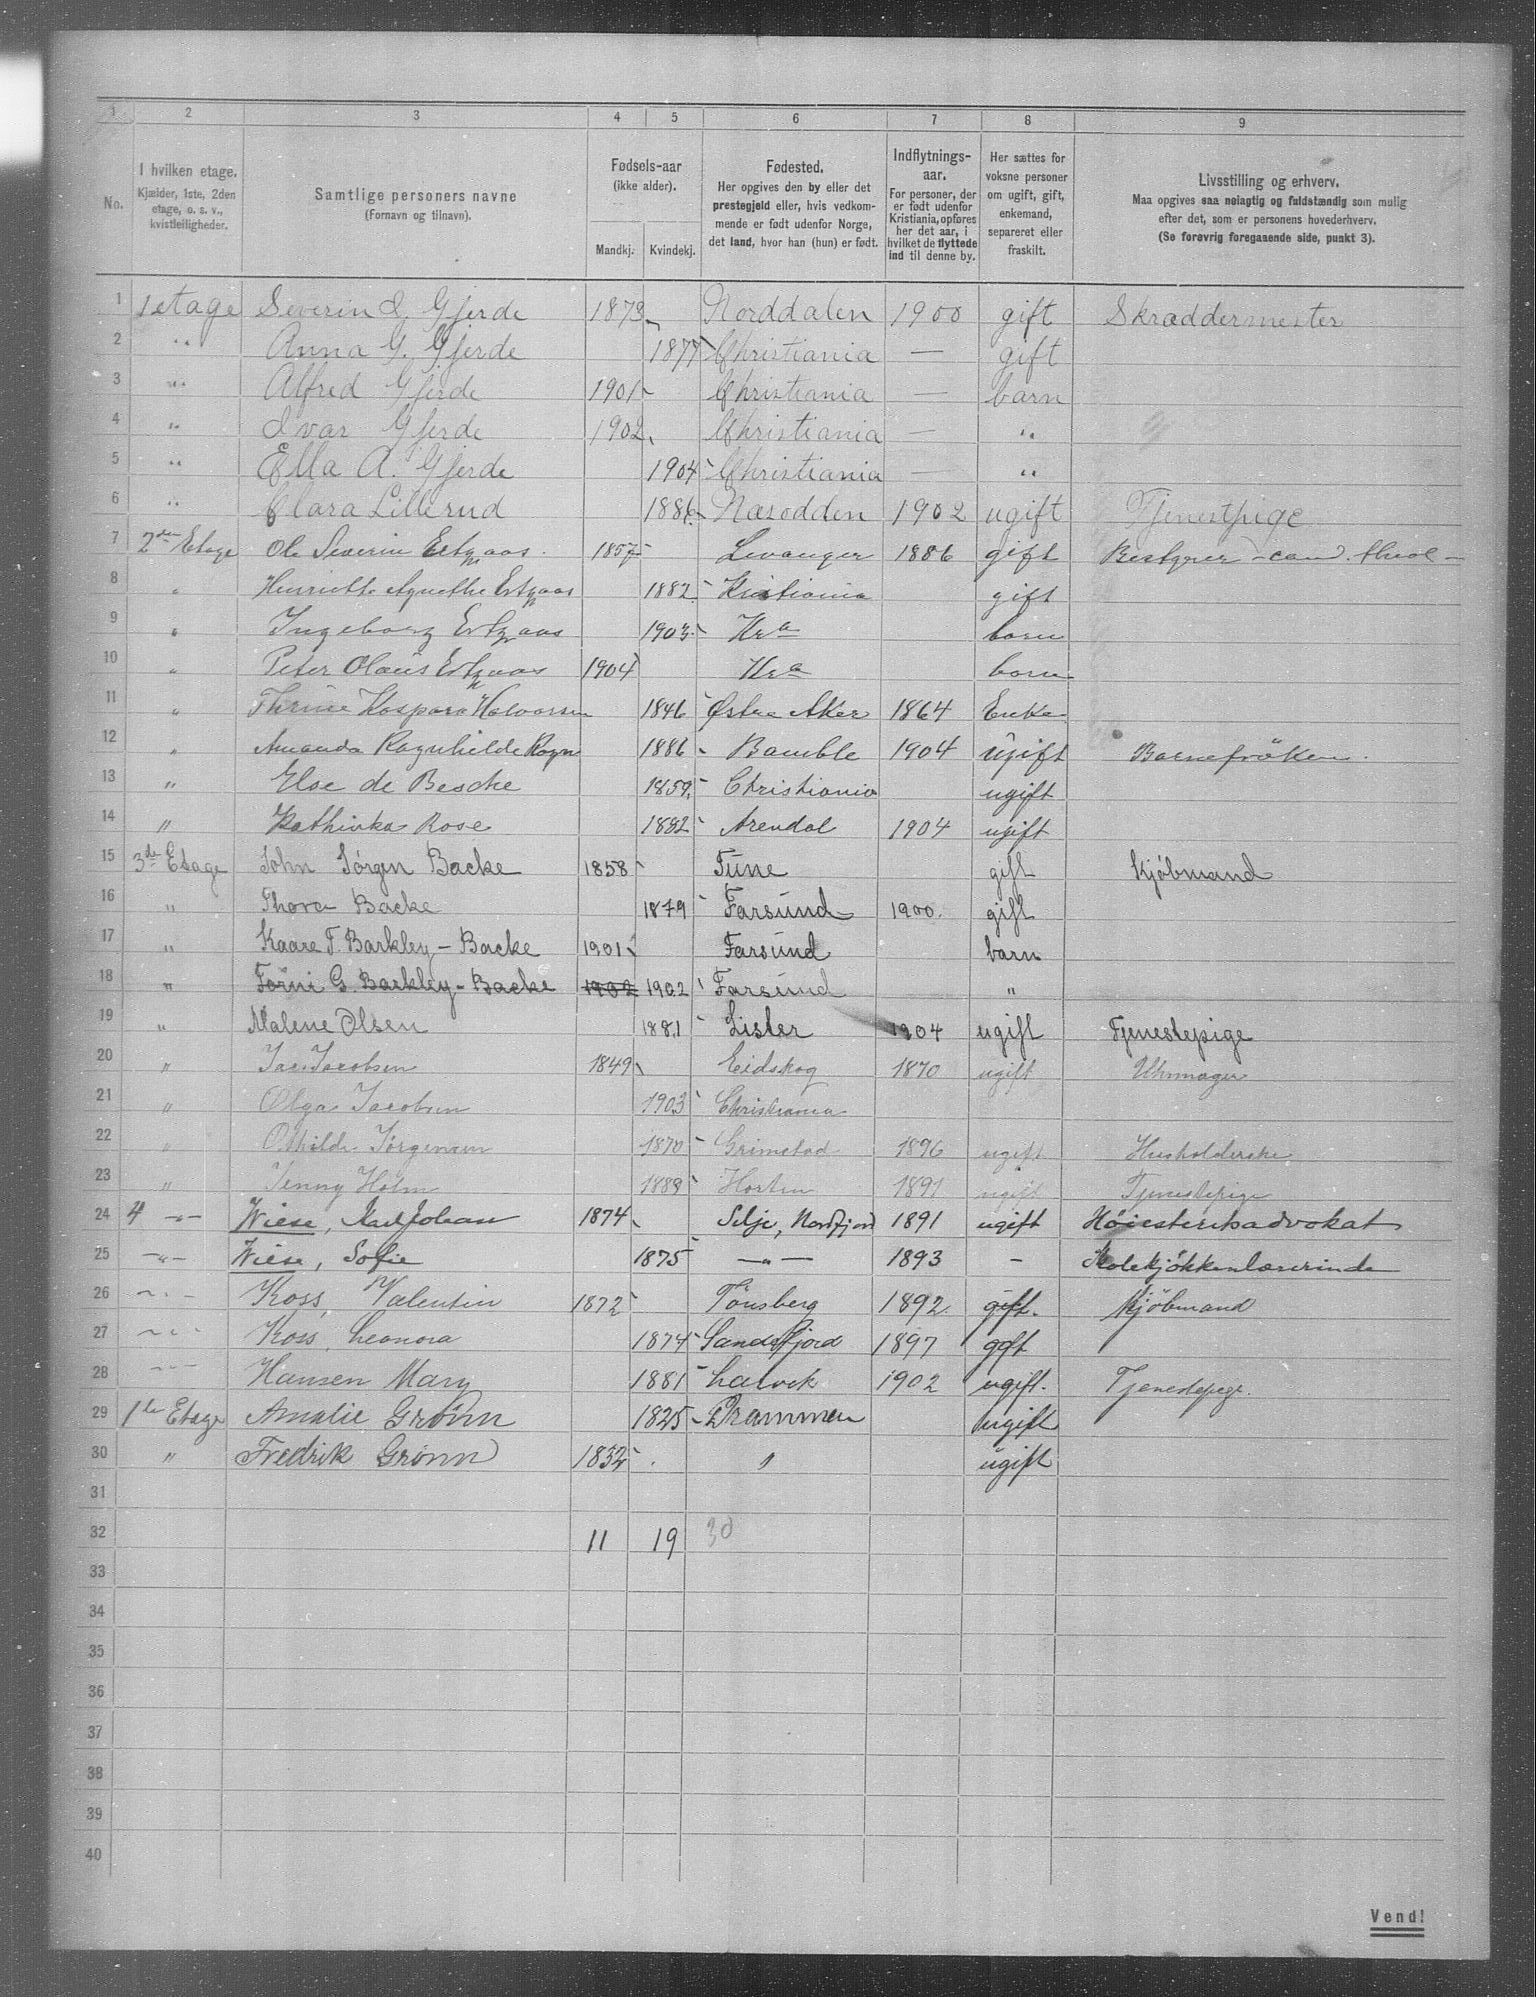 1 2 3 4 5 6 7 8 9
No. | I hvilken etage. Kjælder, 1ste, 2den etage, o. s. v., kvistleiligheder. | Samtlige personers navne (Fornavn og tilnavn). | Fødsels-aar (ikke alder). Mandkj. Kvindekj. | Fødested. Her opgives den by eller det prestegjeld eller, hvis vedkommende er født udenfor Norge, det land, hvor han (hun) er født. | Indflytnings-aar. For personer, der er født udenfor Kristiania, opføres her det aar, i hvilket de flyttede ind til denne by. | Her sættes for voksne personer om ugift, gift, enkemand, separeret eller fraskilt. | Livsstilling og erhverv. Maa opgives saa nøiagtig og fuldstændig som mulig efter det, som er personens hovederhverv. (Se forøvrig foregaaende side, punkt 3).
1 1 etage Severin I. Gjerde 1873 Norddalen 1900 gift Skræddermester
2 " Anna G. Gjerde 1877 Christiania — gift
3 " Alfred Gjerde 1901 Christiania — barn
4 " Ivar Gjerde 1902 Christiania — "
5 " Ella A. Gjerde 1904 Christiania — "
6 " Clara Lillerud 1886 Næsodden 1902 ugift Tjenestpige
7 2den Etage Ole Severin Ertzaas 1857 Levanger 1886 gift Bestyrer - cand. theol -
8 " Henriette Agnethe Ertzaas 1882 Kristiania gift
9 " Ingeborg Ertzaas 1903 Kra barn
10 " Peter Olaus Ertzaas 1904 Kra barn
11 " Thrine Kaspara Halvorsen 1846 Østre Aker 1864 Enke
12 " Amanda Ragnhilde Rogn 1886 Bamble 1904 ugift Barnefröken.
13 " Else de Besche 1859 Christiania ugift
14 " Kathinka Rose 1882 Arendal 1904 ugift
15 3de Etage John Jörgen Backe 1858 Tune gift Kjöbmand
16 " Thora Backe 1879 Farsund 1900. gift
17 " Kaare F. Barkley - Backe 1901 Farsund barn
18 " G. Barkley - Backe 1902 1902 Farsund "
19 " Malene Olsen 1881 Lister 1904 ugift Tjenestepige
20 " Jac. Jacobsen 1849 Eidskog 1870 ugift Uhrmager
21 " Olga Jacobsen 1903 Christiania
22 " Othilde Jørgensen 1870 Grimstad 1896 ugift Husholderske
23 " Jenny Holm 1889 Horten 1891 ugift Tjenestepige
24 4 -"- Wiese, Karl Johan 1874 Selje, Nordfjord 1891 ugift Høiesteretsadvokat
25 -"- Wiese, Sofie 1875 -"- 1893 - Skolekjøkkenlærerinde
26 -"- Koss, Valentin 1872 Tönsberg 1892 gift. Kjöbmand
27 -"- Koss, Leonora 1874 Sandefjord 1897 gift
28 -"- Hansen Mary 1881 Larvik 1902 ugift. Tjenestepige.
29 1ste Etage Amalie Grönn 1825 Drammen ugift
30 " Fredrik Grönn 1832 " ugift
31
32 11 19 30
33
34
35
36
37
38
39
40
Vend!